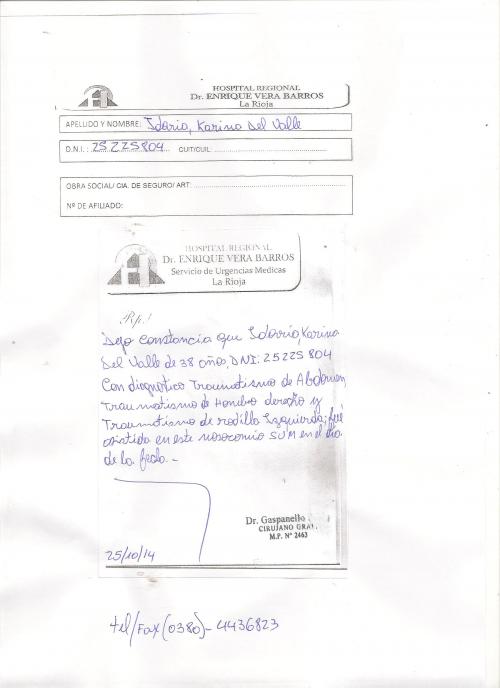 HOSPITAL REGIONAL
Dr. ENRIQUE VERA BARROS
La Rioja
APELLIDO Y NOMBRE: Idario, Karina Del Valle
D.N.I. : 25225804 CUIT/CUIL:
OBRA SOCIAL/ CIA. DE SEGURO/ ART:
Nº DE AFILIADO:
HOSPITAL REGIONAL
Dr. ENRIQUE VERA BARROS
Servicio de Urgencias Medicas
La Rioja
Rp.!
Dejo constancia que Idario, Karina
Del Valle de 38 años, DNI: 25225804
Con diagnostico Traumatismo de Abdomen,
Traumatismo de Hombro derecho y
Traumatismo de rodilla Izquierda; fué
asistida en este nosocomio SUM en el día
de la fecha.-
Dr. Gaspanello
CIRUJANO GRAL.
M.P. Nº 2463
25/10/14
tel/Fax (0380)- 4436823